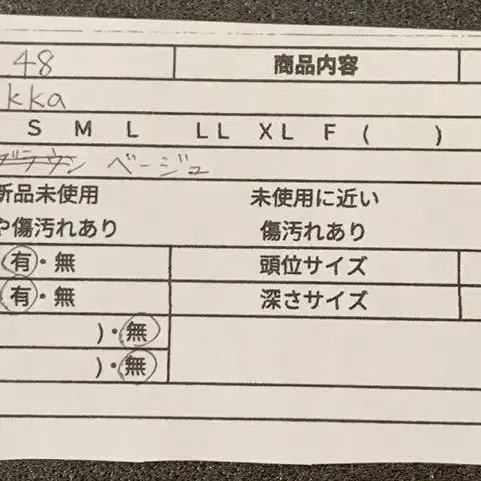 48 商品内容
kka
S M L LL XL F ( )
ブラウン ベージュ
新品未使用 未使用に近い
や傷汚れあり 傷汚れあり
有・無 頭位サイズ
有・無 深さサイズ
)・無
)・無